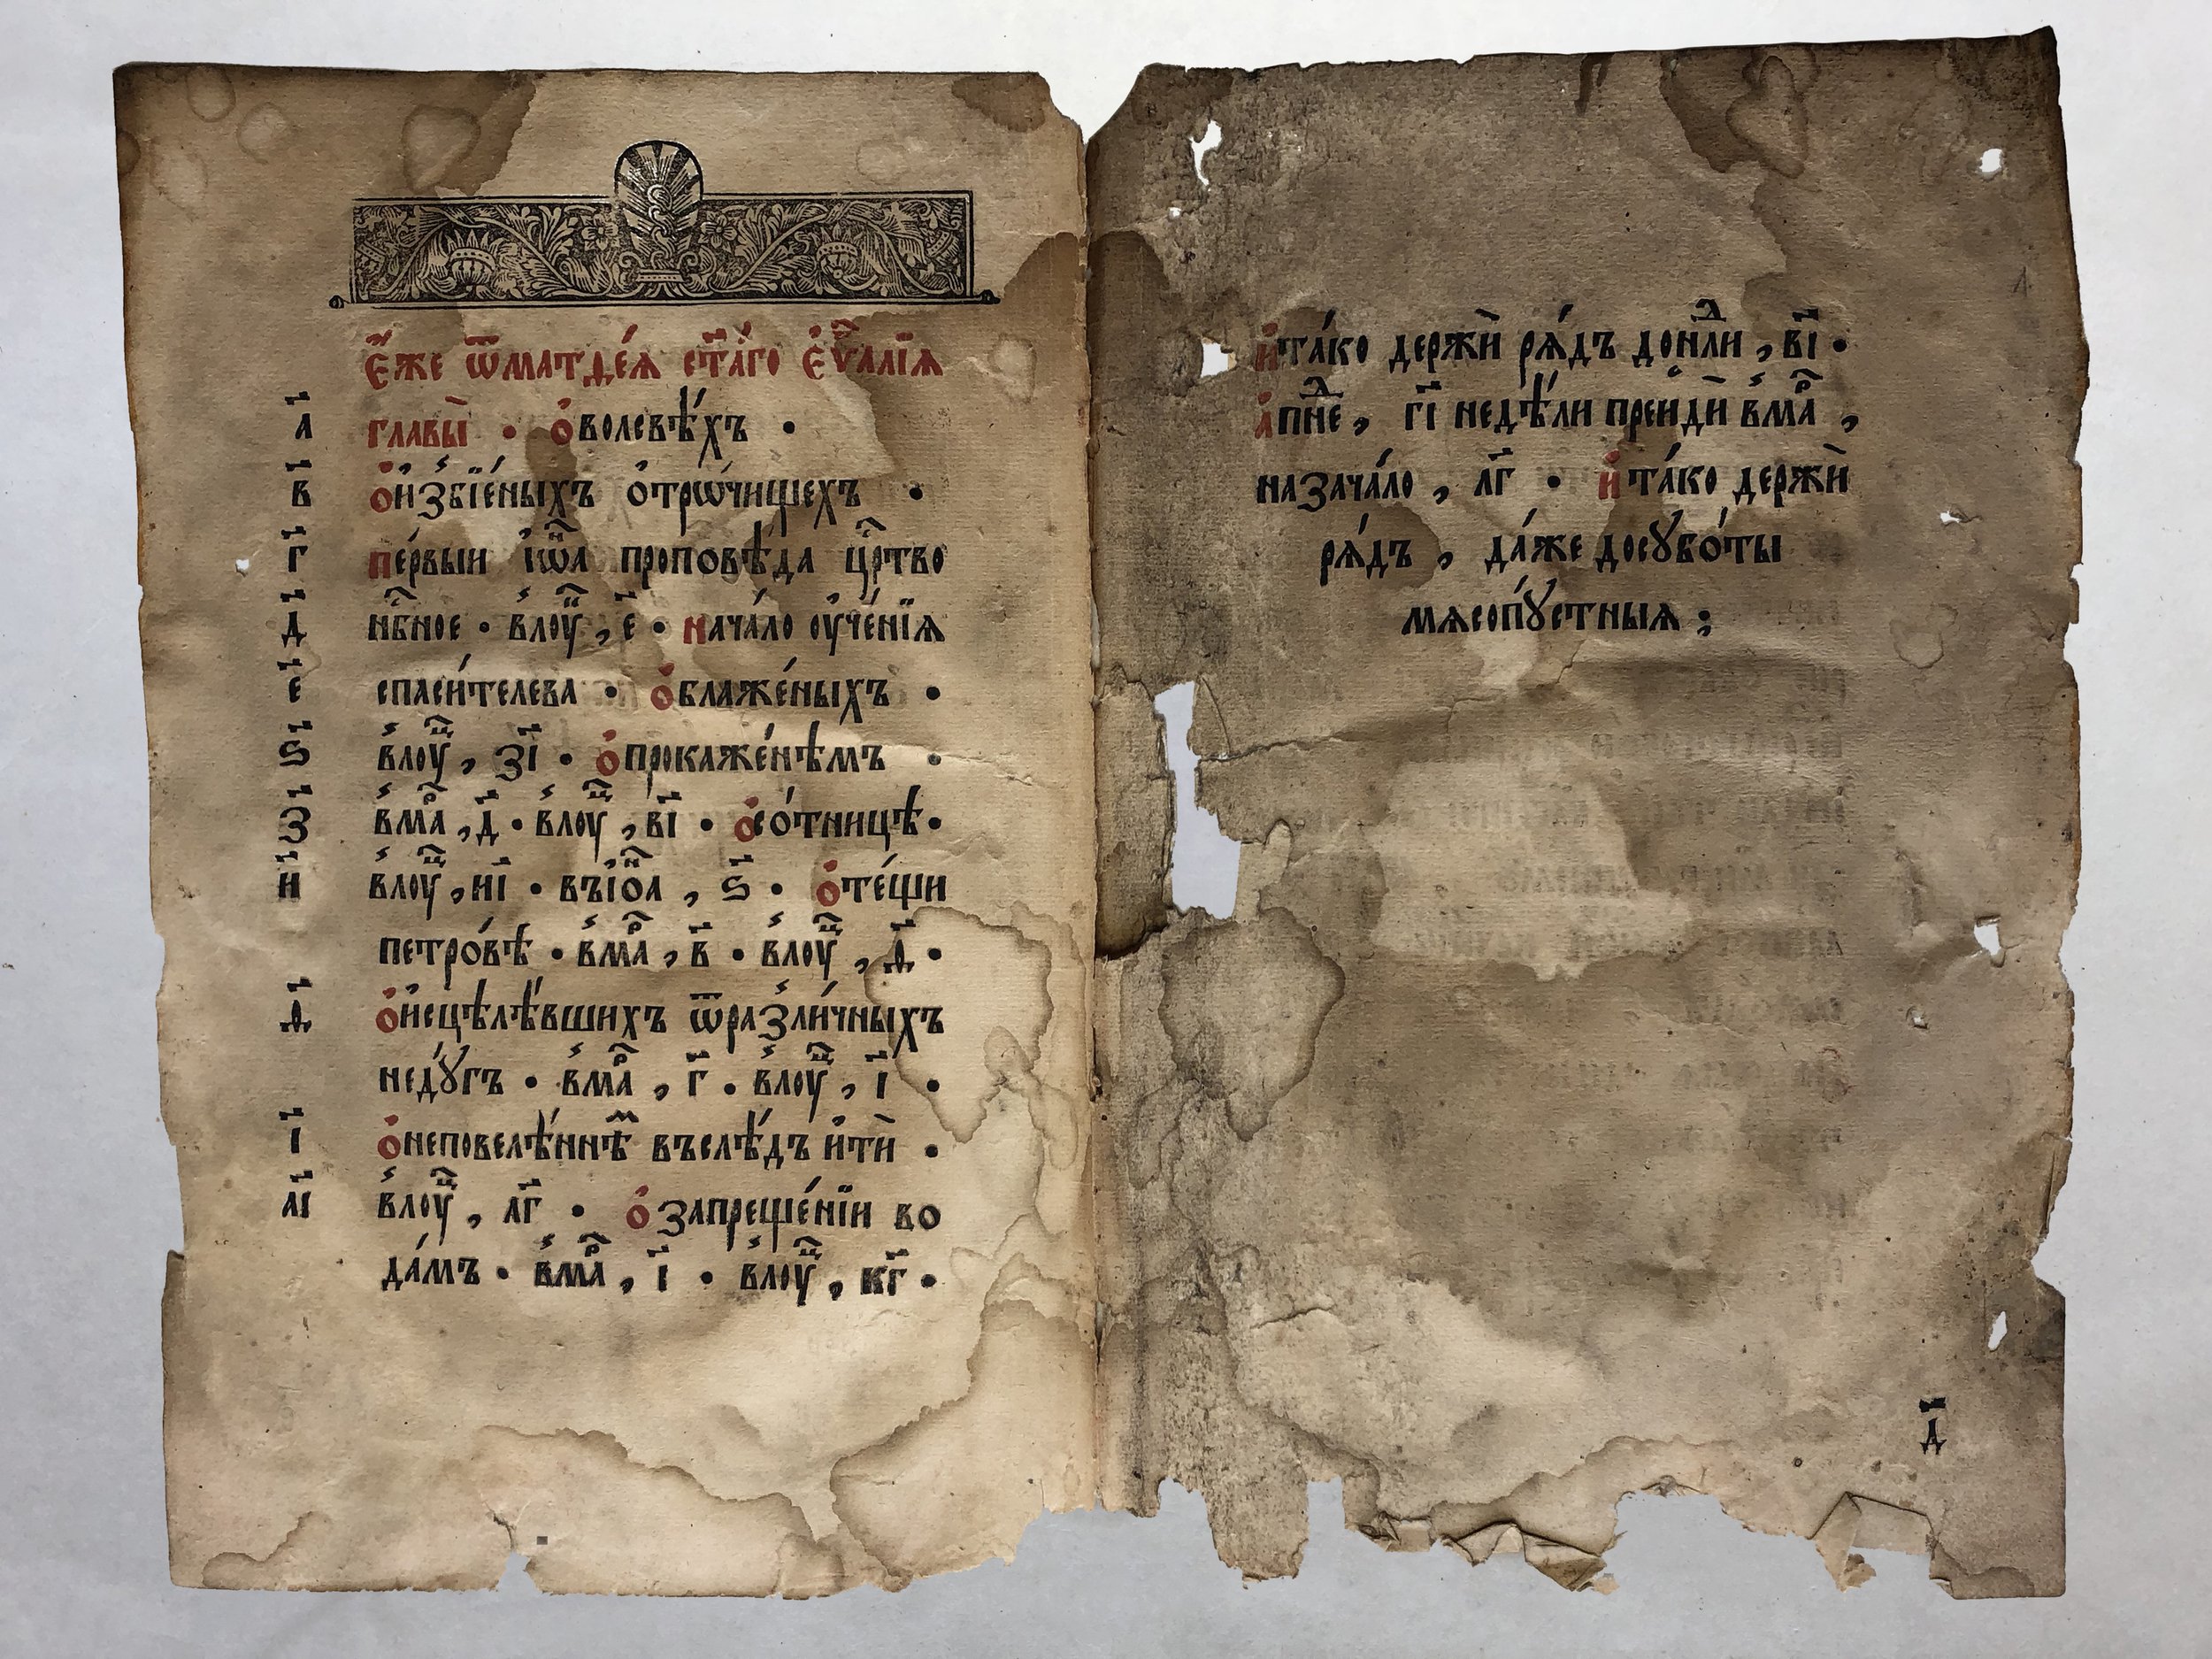 Є҆́же ѿматѳе́а ст҃а́го є҆ѵⷢ҇алїѧ
а҃ главы̀ · ѻ҆волсвѣ́хъ ·
в҃ ѻ҆и҆збїе́ныхъ ѻ҆трѡ́чищехъ ·
г҃ пе́рвыи і҆ѡⷩ҇а проповѣ́да црⷭ҇тво
д҃ нбⷭ҇ное · в̾лоуⷦ҇, є҃ · нача́ло оу҆че́нїѧ
є҃ спаси́телева · ѻ҆блаже́ныхъ ·
ѕ҃ в̾лоуⷦ҇, з҃і · ѻ҆прокаже́нѣмъ ·
з҃ в̾маⷬ҇, д҃ · в̾лоуⷦ҇, в҃і · ѻ҆со́тницѣ ·
и҃ в̾лоуⷦ҇, и҃і · въі҆оⷩ҇а, ѕ҃ · ѻ҆те́щи
петро́вѣ · в̾маⷬ҇, в҃ · в̾лоуⷦ҇, ѳ҃ ·
ѳ҃ ѻ҆и҆сцѣлѣ́вшихъ ѿраз̾ли́чныхъ
недꙋ́гъ · в̾маⷬ҇, г҃ · в̾лоуⷦ҇, і҃ ·
і҃ ѻ҆неповелѣ́ннѣⷨ въслѣ́дъ и҆тѝ ·
а҃і в̾лоуⷦ҇, л҃г · ѻ҆запреще́нїи во
да́мъ · в̾маⷬ҇, і҃ · в̾лоуⷦ҇, к҃г ·
и҆та́ко держѝ рѧ́дъ донⷣли, в҃і ·
а҆пⷣне, г҃і недѣ́ли преидѝ в̾маⷬ҇,
назача́ло, л҃г · и҆та́ко держѝ
рѧ́дъ, да́же досꙋбо́ты
мѧсопꙋ́стныѧ ;
д҃